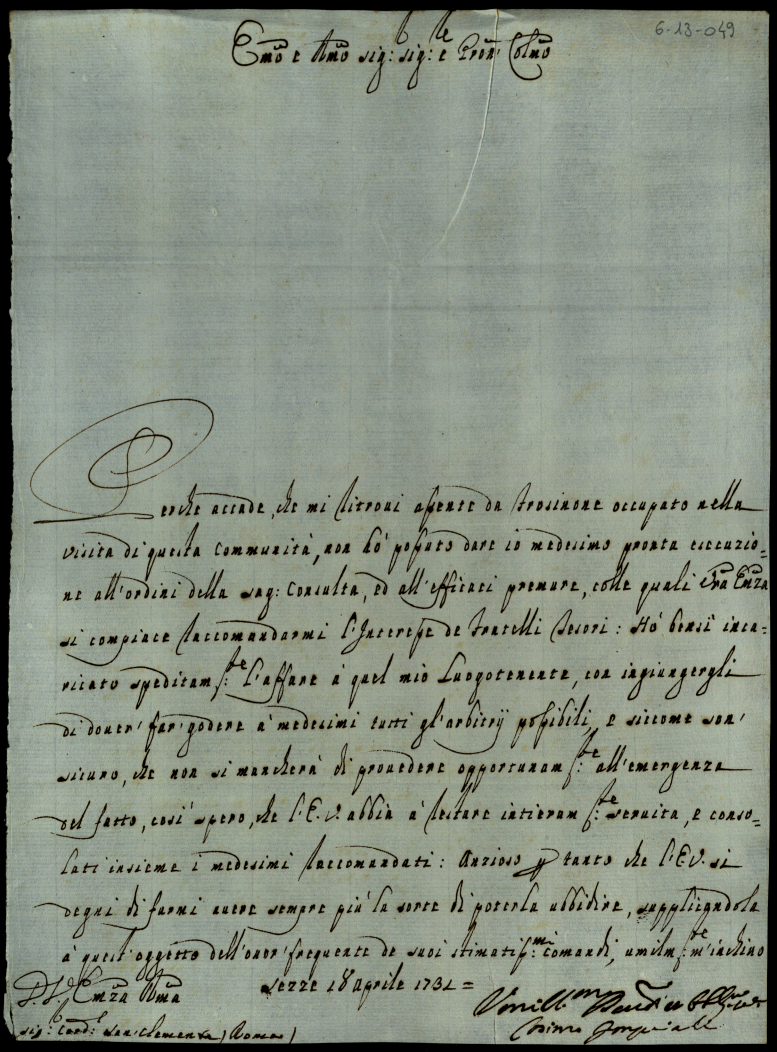 6-13-049
Emo e Rmo sig: sig: e Pron Colmo
Perche accade, che mi ritroui assente da Frosinone occupato nella
visita di questa Communità, non hò possuto dare io medesimo pronta esecuzio=
ne all'ordini della sag: Consulta, ed all'efficaci premure, colle quali Vra Emza
si compiace raccomandarmi l'Interesse de Fratelli Tesori: Hò bensì inca=
ricato speditamte l'affare à quel mio Luogotenente, con ingiungergli
di douer' far' godere à medesimi tutti gl'arbitrij possibili, e siccome son'
sicuro, che non si mancherà di prouedere opportunamte all'emergenza
del fatto, così spero, che l'E.V. abbia à restare intieramte seruita, e conso=
lati insieme i medesimi raccomandati: Anzioso p tanto che l'E.V. si
degni di farmi auere sempre più la sorte di poterla ubbidire, supplicandola
à quest'oggetto dell'onor' frequente de suoi stimatissmi comandi, umilmte m'inchino
Di V. Emza Rma Sezze 18 Aprile 1731=
sig: Card: San Clemente (Roma)